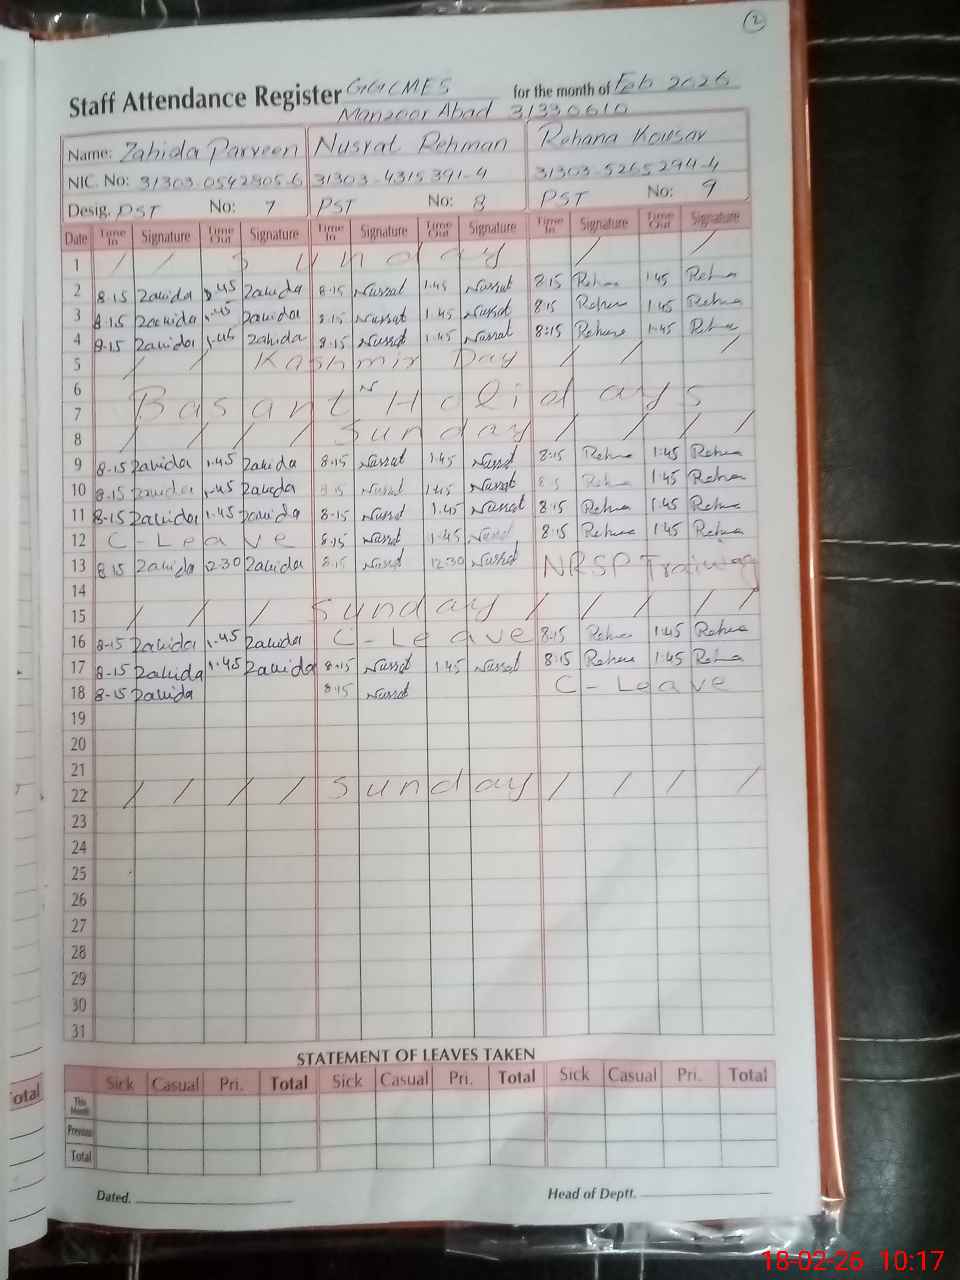 2
Staff Attendance Register GGCMES for the month of Feb 2026
Manzoor Abad 31330610
Name: Zahida Parveen Nusrat Rehman Rehana Kousar
NIC. No: 31303 0542805-6 31303-4315391-4 31303-5265294-4
Desig. PST No: 7 PST No: 8 PST No: 9
Date Time In Signature Time Out Signature Time In Signature Time Out Signature Time In Signature Time Out Signature
1 / / Sunday / /
2 8-15 Zahida 1.45 Zahida 8-15 Nusrat 1.45 Nusrat 8:15 Rehna 1:45 Rehna
3 8-15 Zahida 1.45 Zahida 8:15 Nusrat 1.45 Nusrat 8:15 Rehna 1:45 Rehna
4 8-15 Zahida 1.45 Zahida 8:15 Nusrat 1:45 Nusrat 8:15 Rehna 1:45 Rehna
5 / / Kashmir Day / / /
6
7 Basant Holidays
8 / / / / Sunday / / / /
9 8-15 Zahida 1.45 Zahida 8:15 Nusrat 1:45 Nusrat 8:15 Rehna 1:45 Rehna
10 8-15 Zahida 1.45 Zahida 8:15 Nusrat 1:45 Nusrat 8:15 Rehna 1:45 Rehna
11 8-15 Zahida 1.45 Zahida 8-15 Nusrat 1.45 Nusrat 8:15 Rehna 1:45 Rehna
12 C-Leave 8:15 Nusrat 1:45 Nusrat 8:15 Rehna 1:45 Rehna
13 8-15 Zahida 12-30 Zahida 8:15 Nusrat 12:30 Nusrat NRSP Training
14
15 / / / Sunday / / / / /
16 8-15 Zahida 1.45 Zahida C-Leave 8:15 Rehna 1:45 Rehna
17 8-15 Zahida 1.45 Zahida 8:15 Nusrat 1:45 Nusrat 8:15 Rehna 1:45 Rehna
18 8-15 Zahida 8:15 Nusrat C-Leave
19
20
21
22 / / / / Sunday / / / /
23
24
25
26
27
28
29
30
31
STATEMENT OF LEAVES TAKEN
Sick Casual Pri. Total Sick Casual Pri. Total Sick Casual Pri. Total
This Month
Previous
Total
Dated. Head of Deptt.
18-02-26 10:17